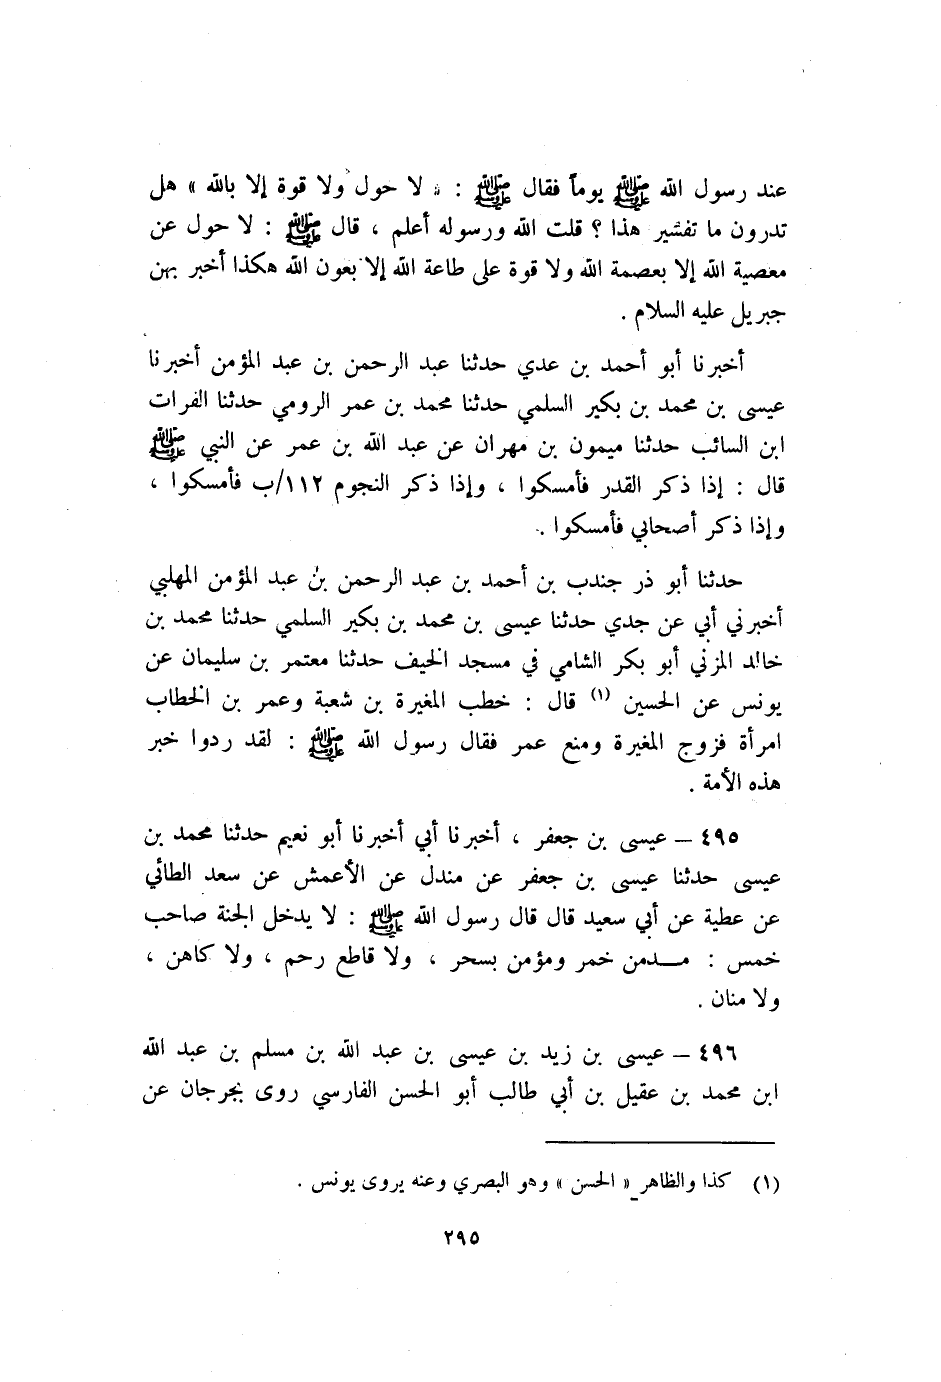 عند رسول الله ﷺ يوماً فقال ﷺ : « لا حول ولا قوة إلا بالله » هل
تدرون ما تفسير هذا ؟ قلت الله ورسوله أعلم ، قال ﷺ : لا حول عن
معصية الله إلا بعصمة الله ولا قوة على طاعة الله إلا بعون الله هكذا أخبر بهن
جبريل عليه السلام .
أخبرنا أبو أحمد بن عدي حدثنا عبد الرحمن بن عبد المؤمن أخبرنا
عيسى بن محمد بن بكير السلمي حدثنا محمد بن عمر الرومي حدثنا الفرات
ابن السائب حدثنا ميمون بن مهران عن عبد الله بن عمر عن النبي ﷺ
قال : إذا ذكر القدر فأمسكوا ، وإذا ذكر النجوم ١١٢/ب فأمسكوا ،
وإذا ذكر أصحابي فأمسكوا .
حدثنا أبو ذر جندب بن أحمد بن عبد الرحمن بن عبد المؤمن المهلبي
أخبرني أبي عن جدي حدثنا عيسى بن محمد بن بكير السلمي حدثنا محمد بن
خالد المزني أبو بكر الشامي في مسجد الخيف حدثنا معتمر بن سليمان عن
يونس عن الحسين (١) قال : خطب المغيرة بن شعبة وعمر بن الخطاب
امرأة فزوج المغيرة ومنع عمر فقال رسول الله ﷺ : لقد ردوا خبر
هذه الأمة .
٤٩٥ – عيسى بن جعفر ، أخبرنا أبي أخبرنا أبو نعيم حدثنا محمد بن
عيسى حدثنا عيسى بن جعفر عن مندل عن الأعمش عن سعد الطائي
عن عطية عن أبي سعيد قال قال رسول الله ﷺ : لا يدخل الجنة صاحب
خمس : مــدمن خمر ومؤمن بسحر ، ولا قاطع رحم ، ولا كاهن ،
ولا منان .
٤٩٦ – عيسى بن زيد بن عيسى بن عبد الله بن مسلم بن عبد الله
ابن محمد بن عقيل بن أبي طالب أبو الحسن الفارسي روى بجرجان عن
(١) كذا والظاهر « الحسن » وهو البصري وعنه يروى يونس .
٢٩٥